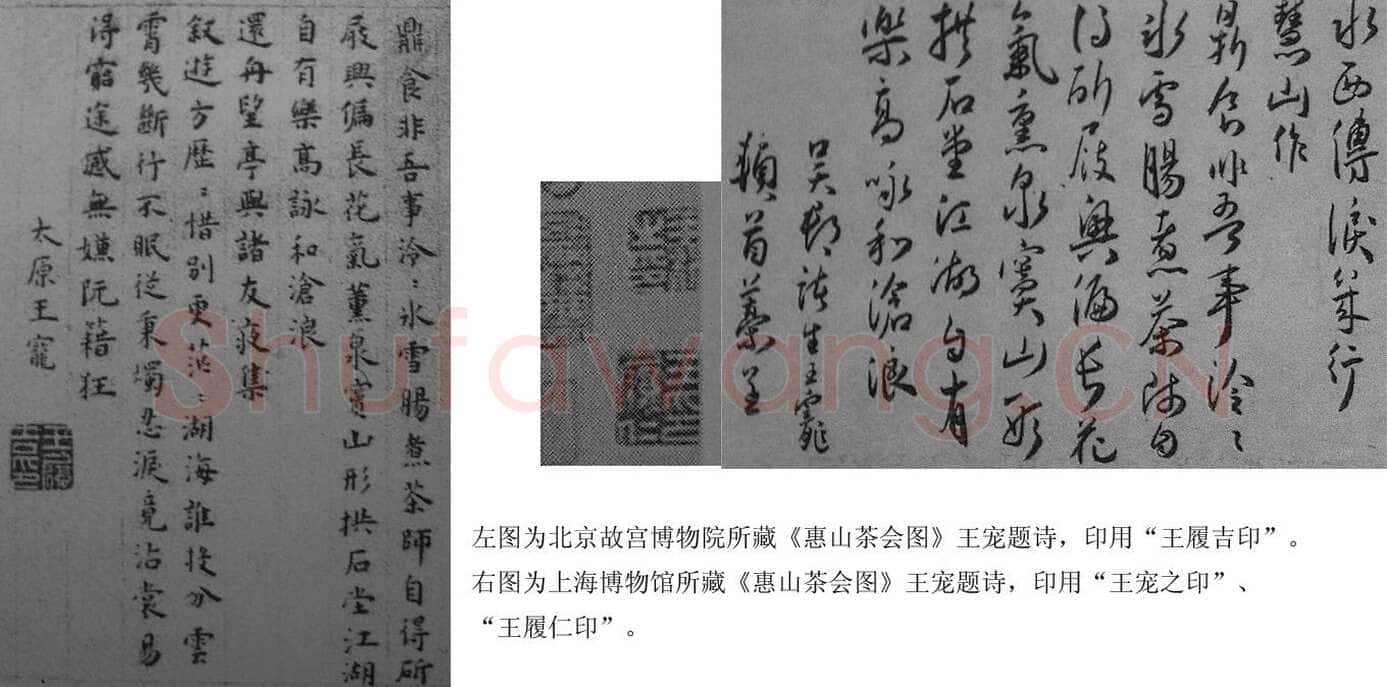 鼎食非吾事泠〻氷雪腸煮茶師自得斫
屐興偏長花氣薰泉竇山形拱石堂江湖
自有樂高詠和滄浪
還舟望亭與諸友夜集
叙遊方歷〻惜别更茫〻湖海誰投分雲
霄幾斷行不眠從秉燭忍淚竟沾裳易
得窮途感無嫌阮籍狂
太原王寵
水西傳淚幾行
慧山作
鼎食非吾事泠〻
氷雪腸煮茶師自
得斫屐興偏長花
氣熏泉竇山形
拱石堂江湖自有
樂高咏和滄浪
吳郡諸生王寵
頓首藁呈
Shufawang.CN
左图为北京故宫博物院所藏《惠山茶会图》王宠题诗，印用“王履吉印”。
右图为上海博物馆所藏《惠山茶会图》王宠题诗，印用“王宠之印”、
“王履仁印”。